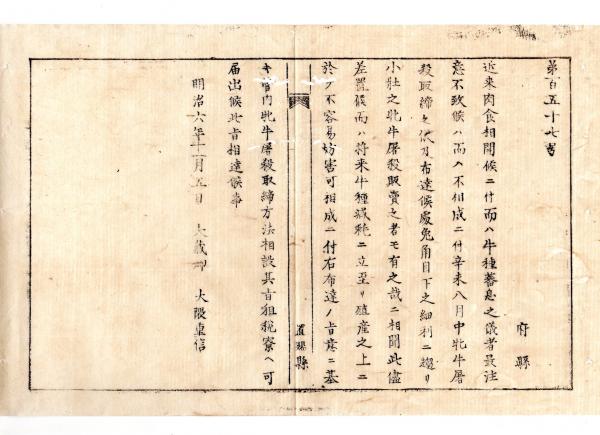 第百五十七号
府縣
近来肉食相開候ニ付而ハ牛種蕃息之儀者最注
意不致候ハ而ハ不相成ニ付辛未八月中牝牛屠
殺取締之依及布達候處兎角目下之細利ニ趨リ
小壮之牝牛屠殺販賣之者モ有之哉ニ相聞此儘
差置候而ハ将来牛種減耗ニ立至リ殖産之上ニ
於テ不容易妨害可相成ニ付右布達ノ旨意ニ基
置賜縣
キ管内牝牛屠殺取締方法相設其旨租税寮ヘ可
届出候此旨相達候事
明治六年十一月五日 大蔵卿 大隈重信